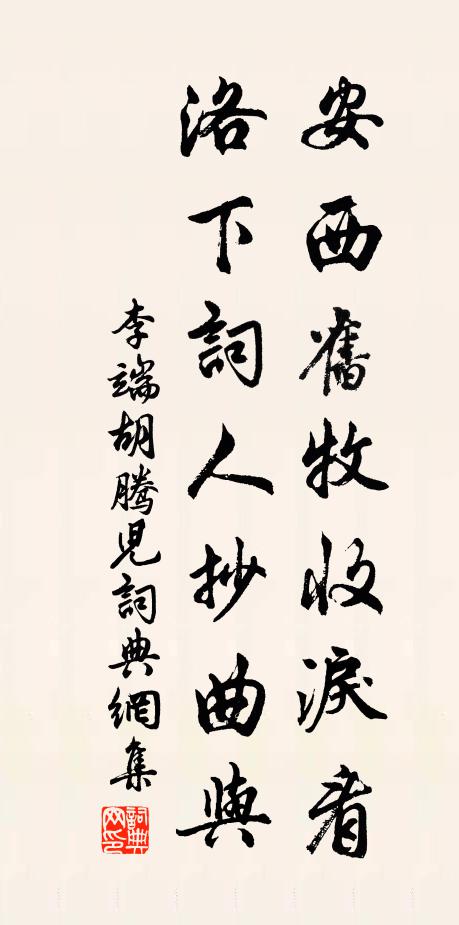 安西舊牧收淚看
洛下詞人抄曲與
李端胡騰兒詞典網集
詞典网印